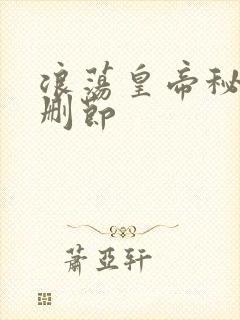 浪荡皇帝秘
删节
萧亚轩